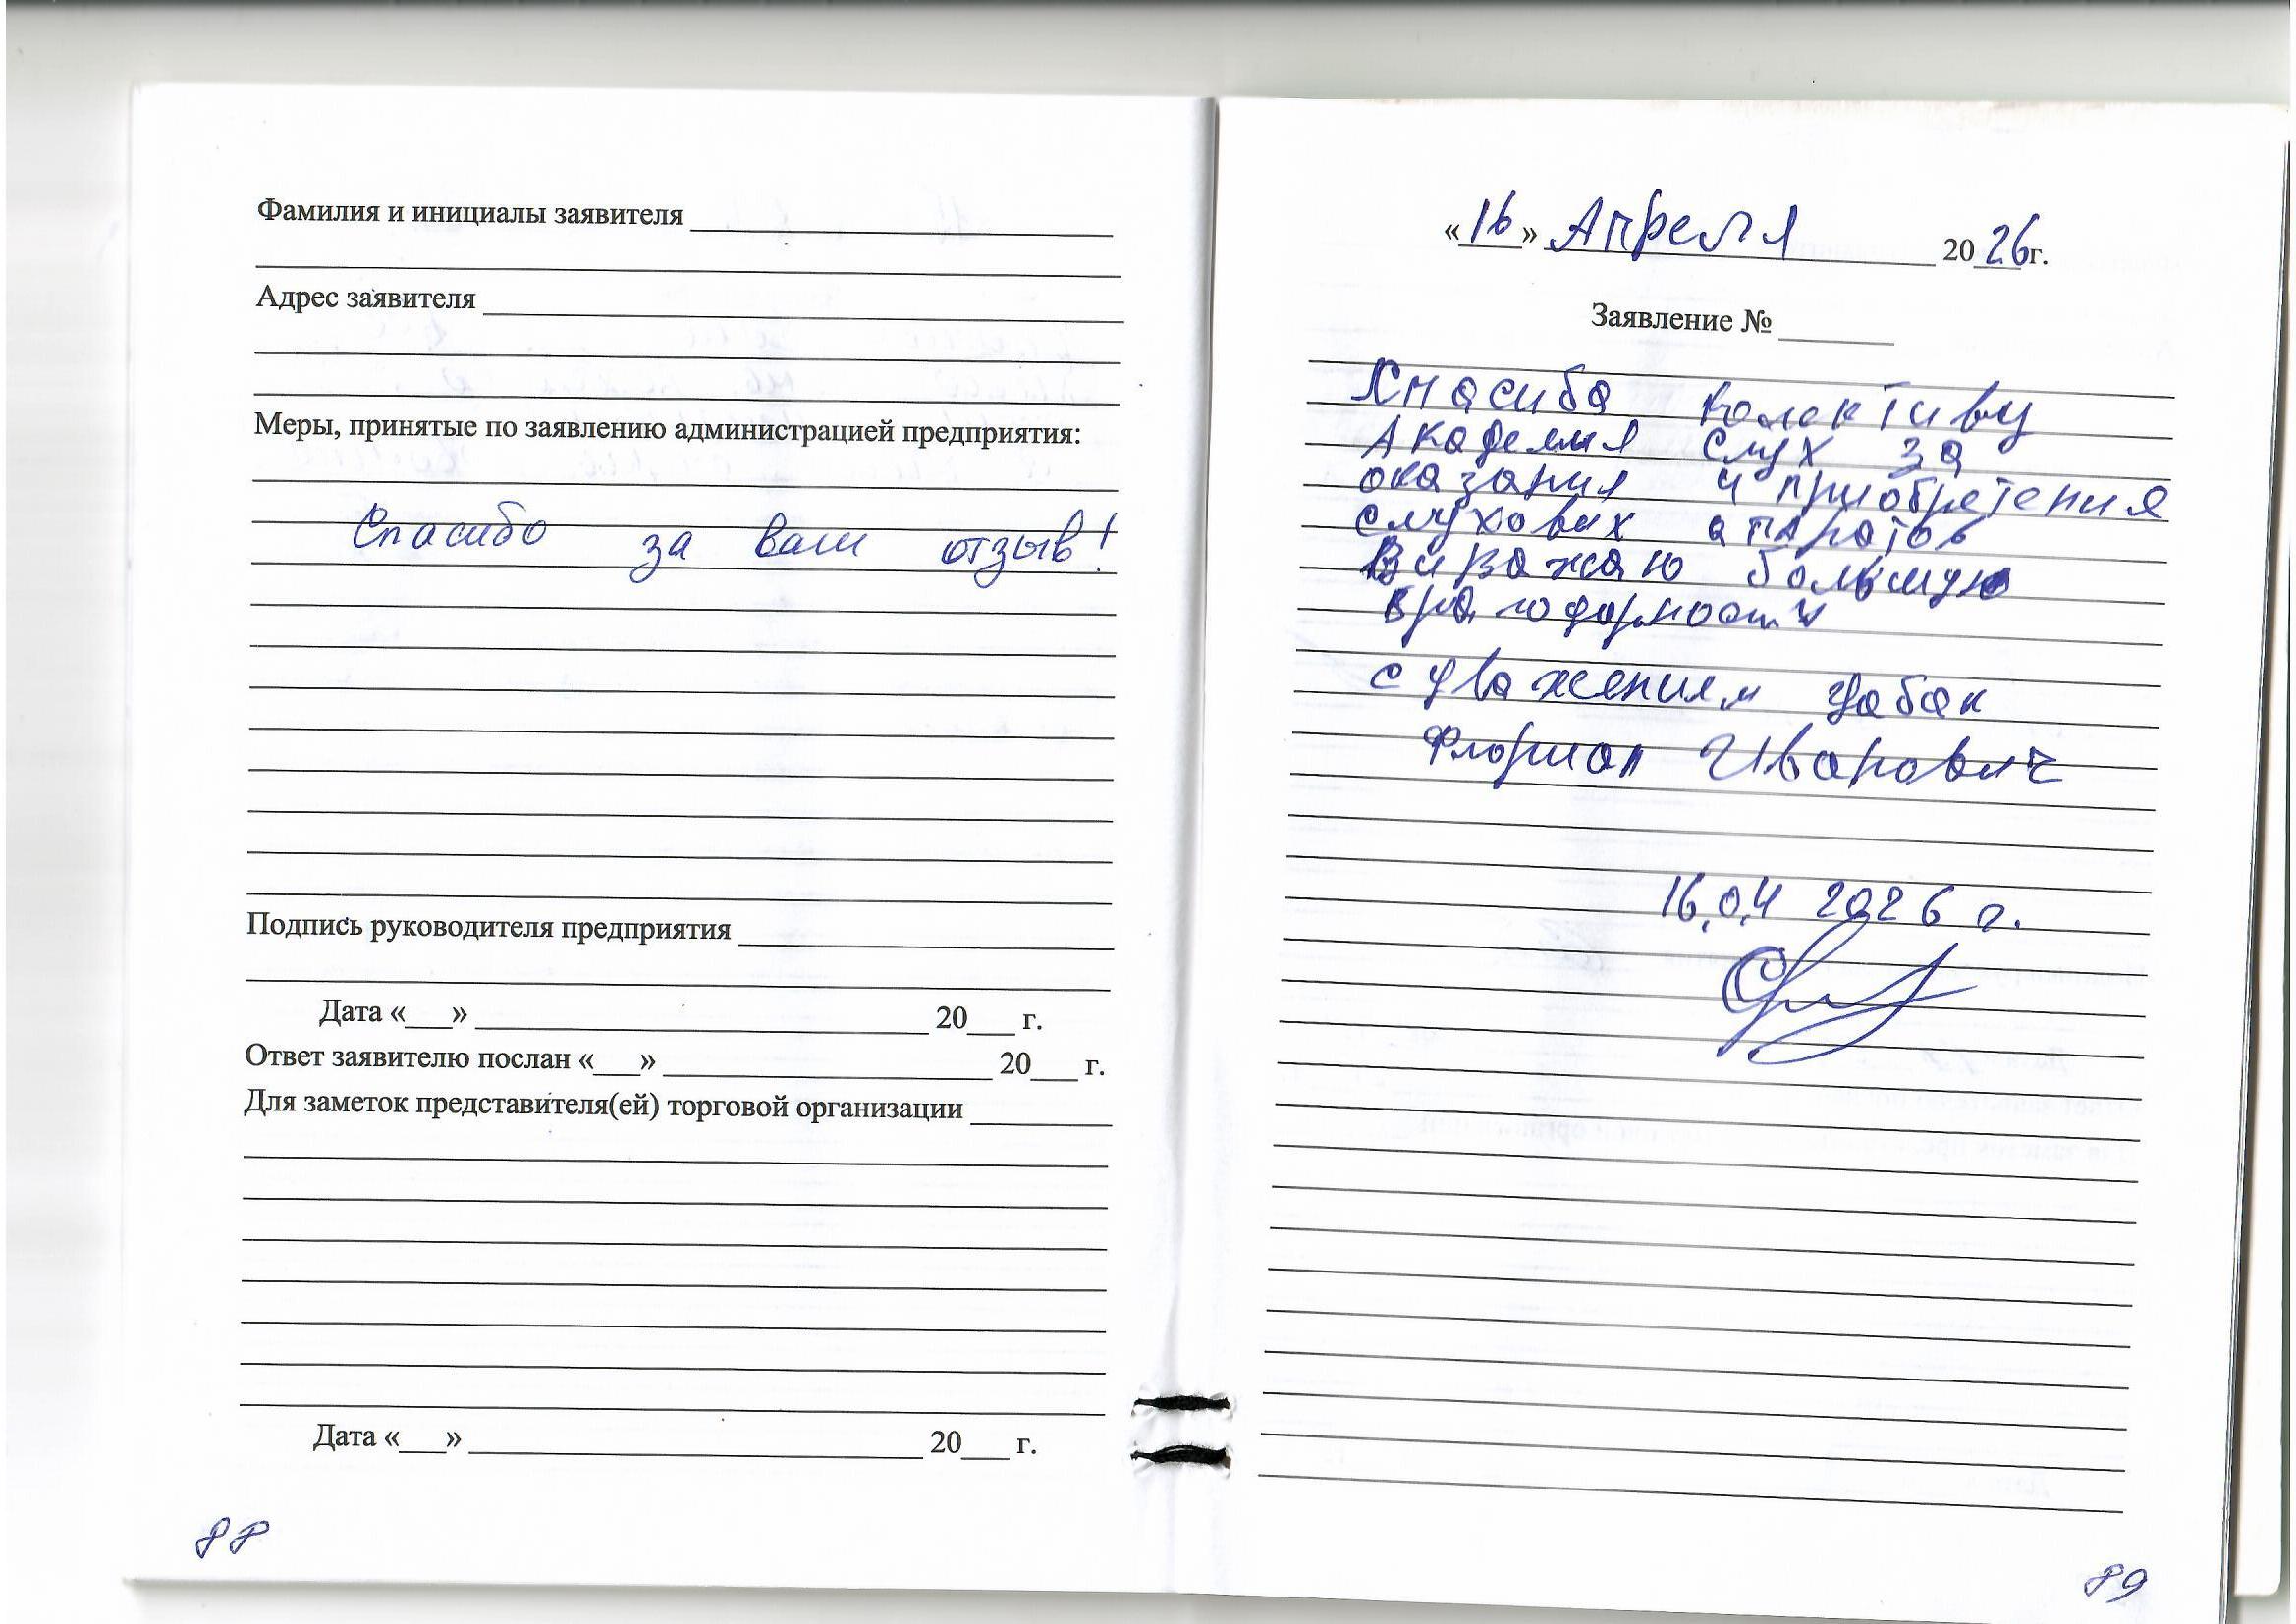 Фамилия и инициалы заявителя
Адрес заявителя
Меры, принятые по заявлению администрацией предприятия:
Спасибо за ваш отзыв!
Подпись руководителя предприятия
Дата «___» 20___ г.
Ответ заявителю послан «___» 20___ г.
Для заметок представителя(ей) торговой организации
Дата «___» 20___ г.
88
«16» Апреля 2026г.
Заявление №
Спасиба колективу
Академия слух за
оказания и приобретения
слухових апаратов
Виражаю большую
с уважением
Флориан Иванович
16.04 2026 г.
89